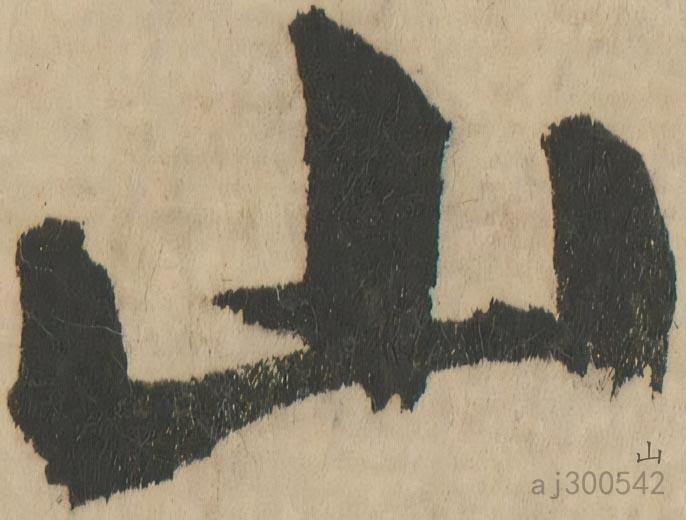 山
山
aj300542